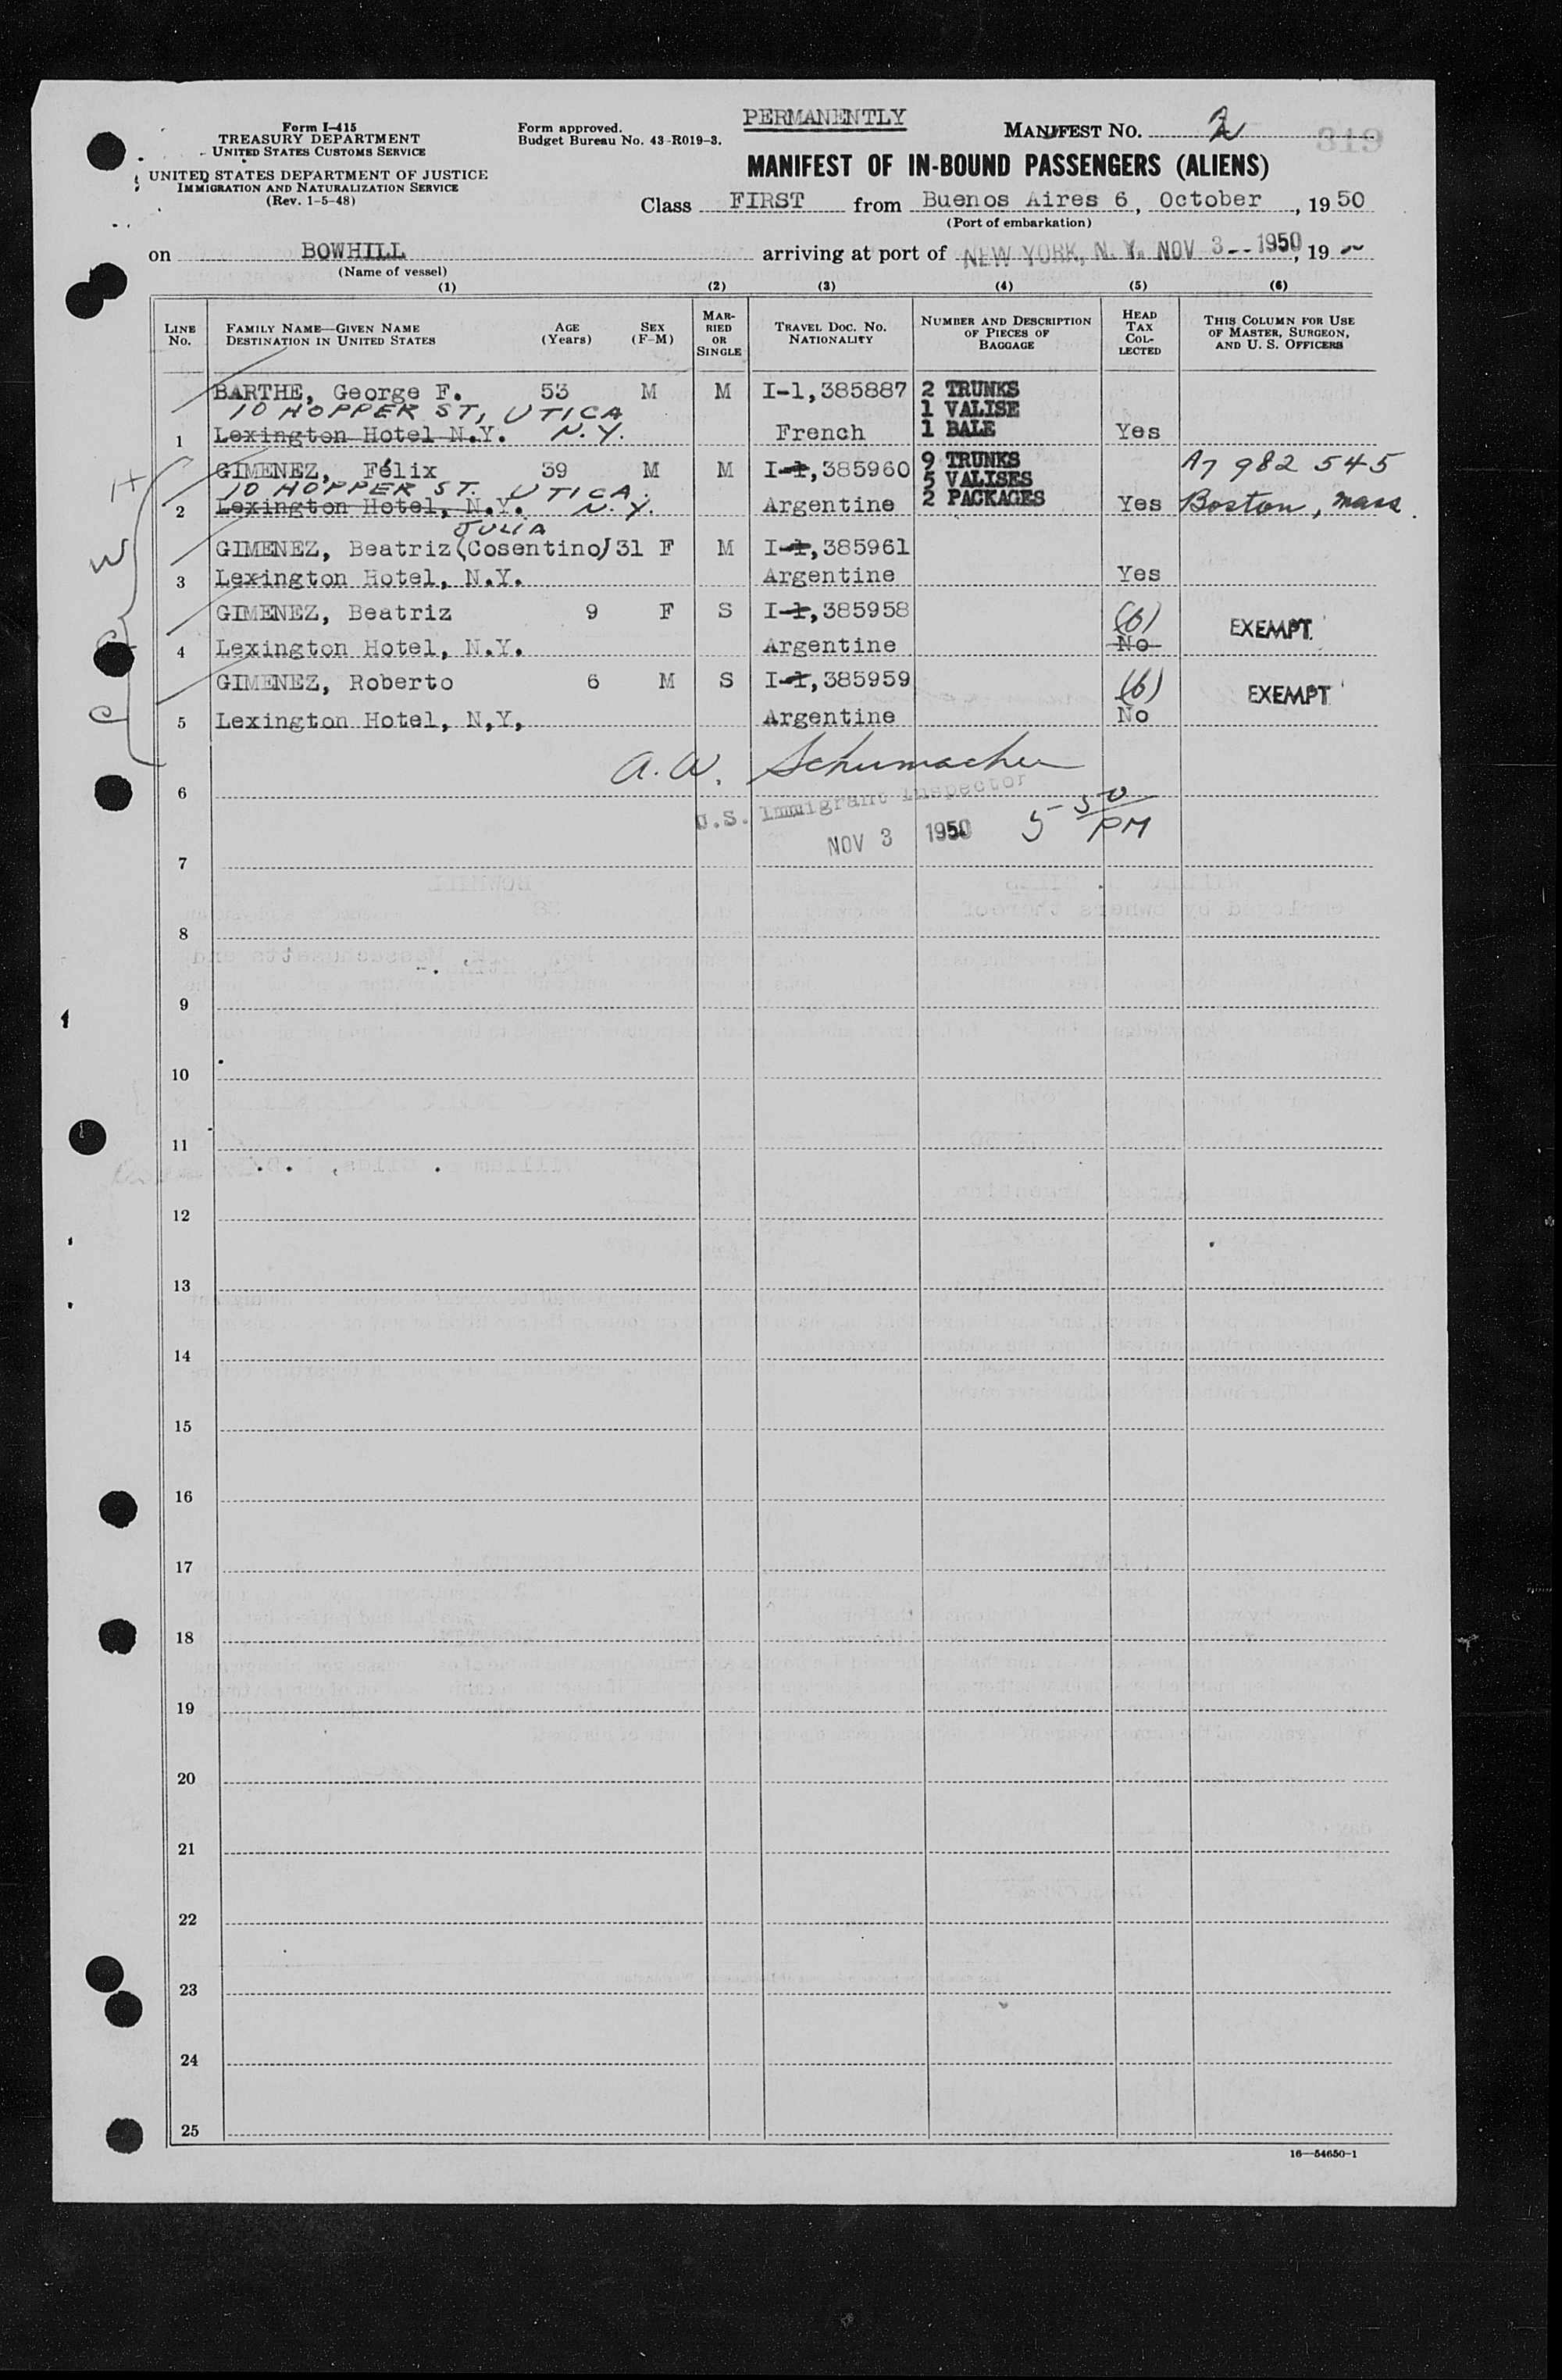 Form I-415
TREASURY DEPARTMENT
UNITED STATES CUSTOMS SERVICE
UNITED STATES DEPARTMENT OF JUSTICE
IMMIGRATION AND NATURALIZATION SERVICE
(Rev. 1-5-48)
Form approved.
Budget Bureau No. 43-R019-3.
PERMANENTLY
MANIFEST NO. 2
319
MANIFEST OF IN-BOUND PASSENGERS (ALIENS)
Class FIRST from Buenos Aires 6, October, 1950
(Port of embarkation)
on BOWHILL arriving at port of NEW YORK, N. Y. NOV 3 -- 1950, 19
(Name of vessel)
(1) (2) (3) (4) (5) (6)
LINE No. FAMILY NAME—GIVEN NAME DESTINATION IN UNITED STATES AGE (Years) SEX (F-M) MARRIED OR SINGLE TRAVEL DOC. NO. NATIONALITY NUMBER AND DESCRIPTION OF PIECES OF BAGGAGE HEAD TAX COLLECTED THIS COLUMN FOR USE OF MASTER, SURGEON, AND U. S. OFFICERS
BARTHE, George F. 53 M M I-1,385887 2 TRUNKS
10 HOPPER ST, UTICA 1 VALISE
1 Lexington Hotel N.Y. N.Y. French 1 BALE Yes
GIMENEZ, Félix 39 M M I-1,385960 9 TRUNKS A7 982 545
10 HOPPER ST. UTICA. 5 VALISES
2 Lexington Hotel, N.Y. N.Y. Argentine 2 PACKAGES Yes Boston, Mass.
JULIA
GIMENEZ, Beatriz (Cosentino) 31 F M I-1,385961
3 Lexington Hotel, N.Y. Argentine Yes
GIMENEZ, Beatriz 9 F S I-1,385958 (6) EXEMPT
4 Lexington Hotel, N.Y. Argentine No
GIMENEZ, Roberto 6 M S I-1,385959 (6) EXEMPT
5 Lexington Hotel, N,Y, Argentine No
A. W. Schumacher
6
U.S. Immigrant Inspector
NOV 3 1950 5 50 PM
7
8
9
10
11
12
13
14
15
16
17
18
19
20
21
22
23
24
25
16—54650-1